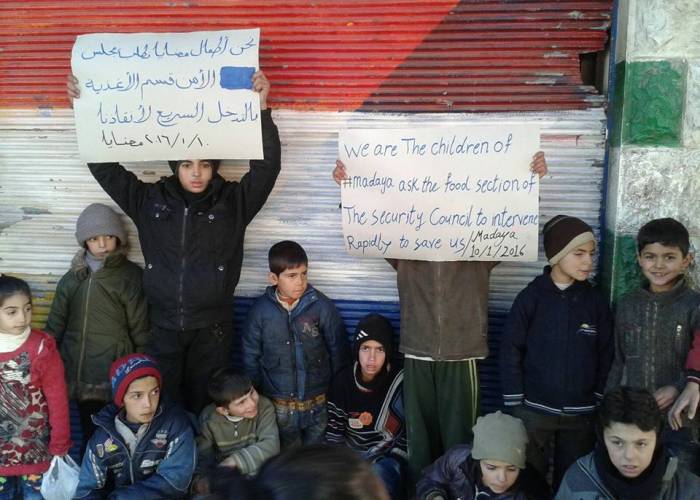 نحن أطفال مضايا نطلب مجلس
الأمن قسم الأغذية
بالتدخل السريع لأنقاذنا
مضايا ٢٠١٦/١/١٠
We are The children of
#madaya ask the food section of
The security Council to intervene
Rapidly to save us/Madaya
10/1/2016